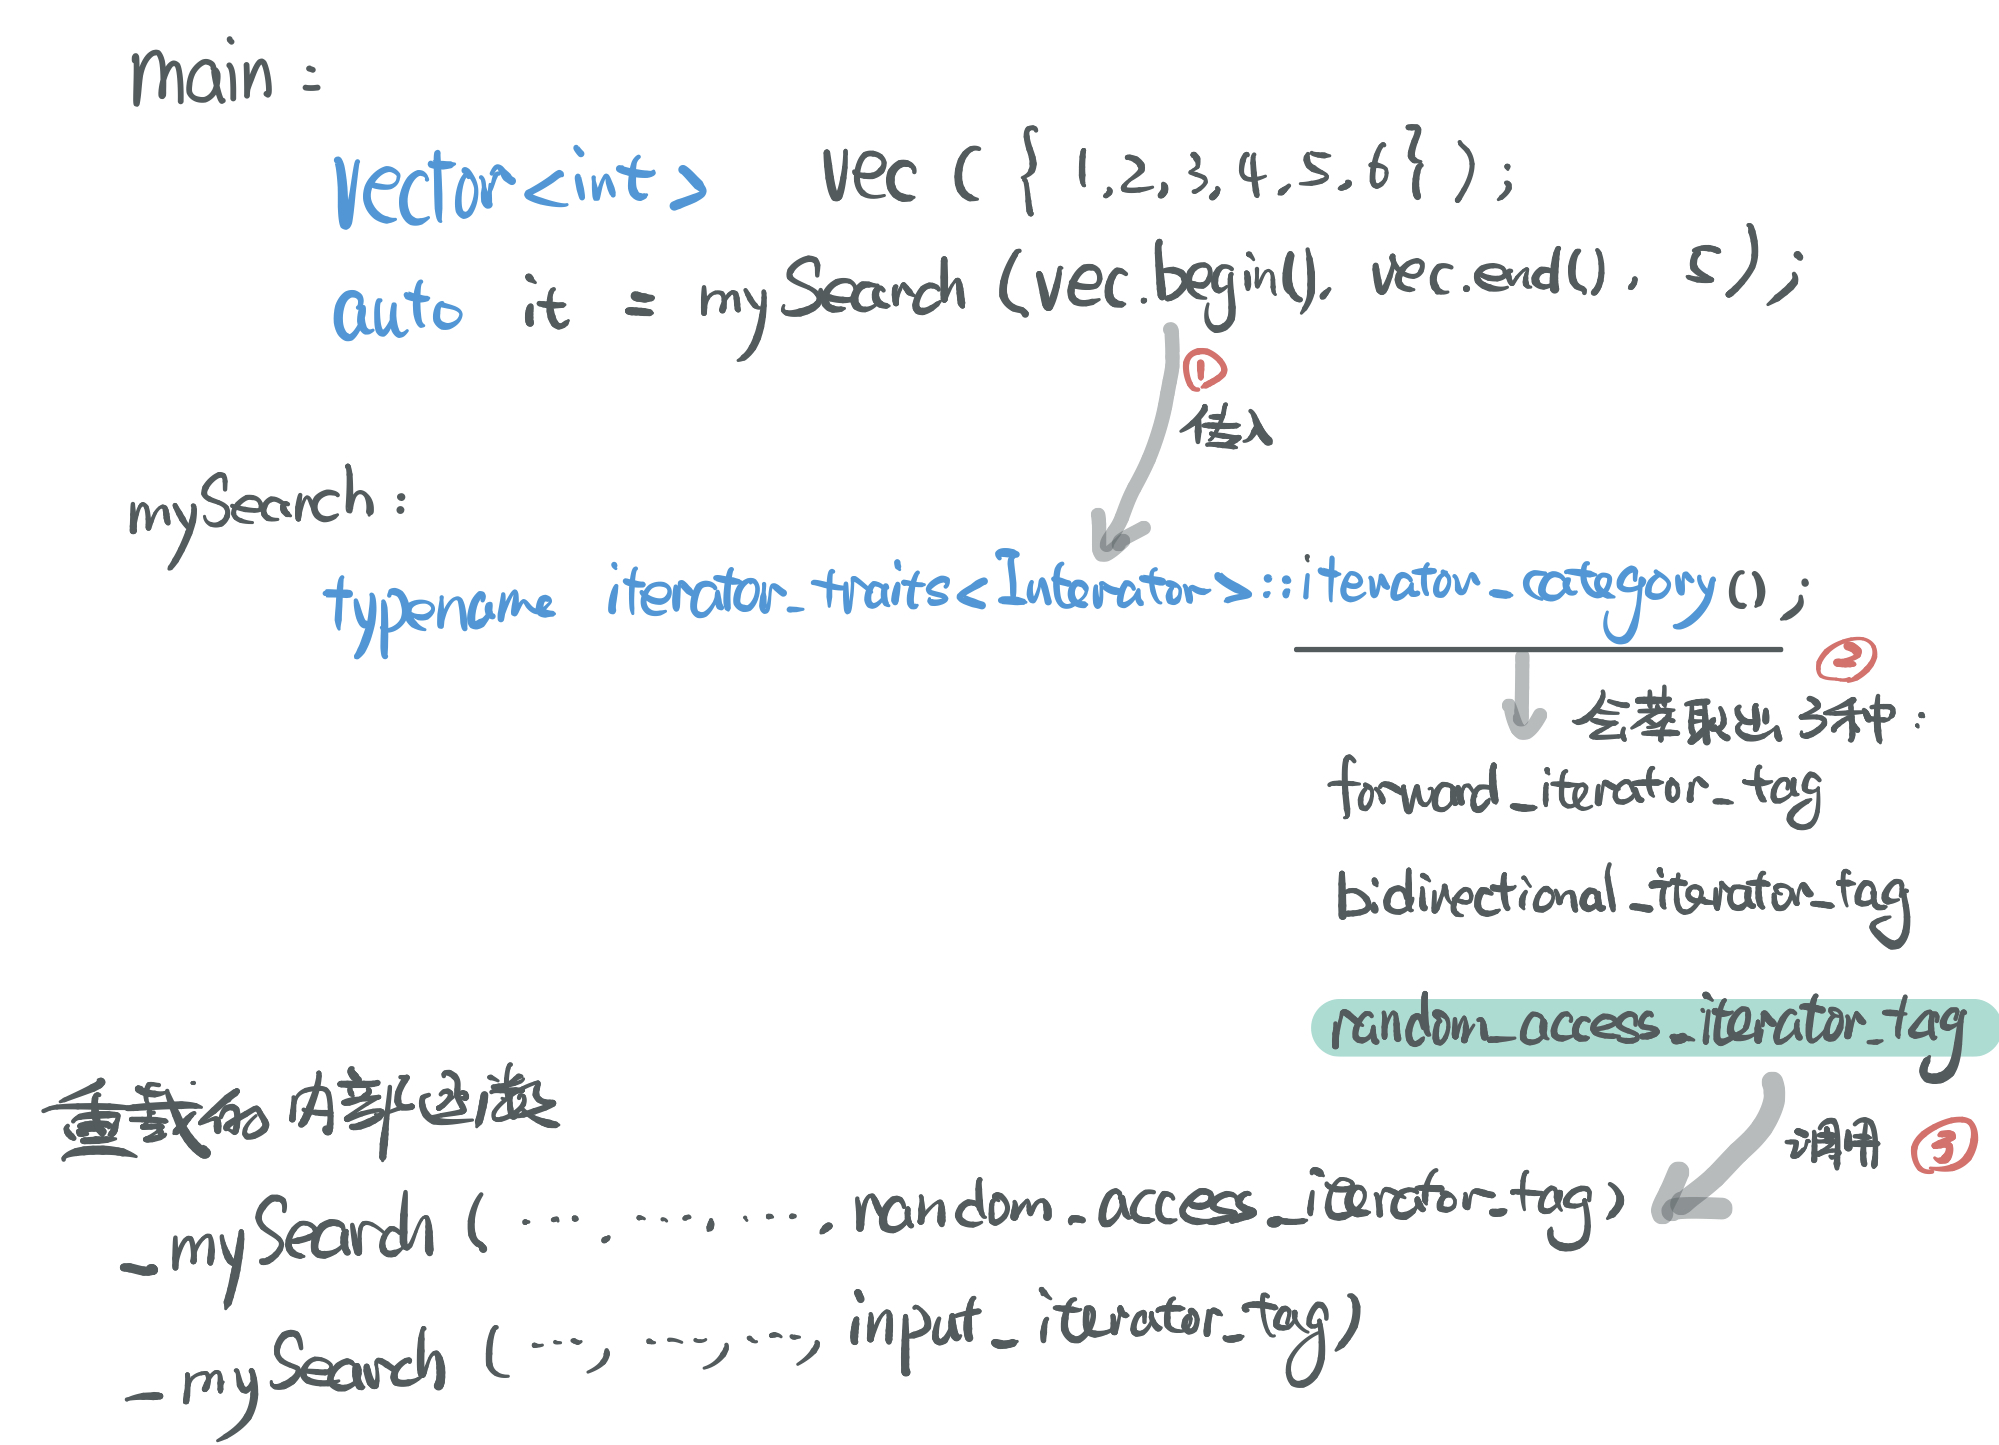 main :
vector<int> vec ( { 1,2,3,4,5,6 } ) ;
auto it = mySearch (vec.begin(), vec.end(), 5) ;
①
传入
mySearch :
typename iterator_traits<Interator>::iterator_category () ;
②
会萃取出 3种 :
forward_iterator_tag
bidirectional_iterator_tag
random_access_iterator_tag
重载的内部函数
调用 ③
_mySearch ( ... , ... , ... , random_access_iterator_tag)
_mySearch ( ... , ... , ... , input_iterator_tag)